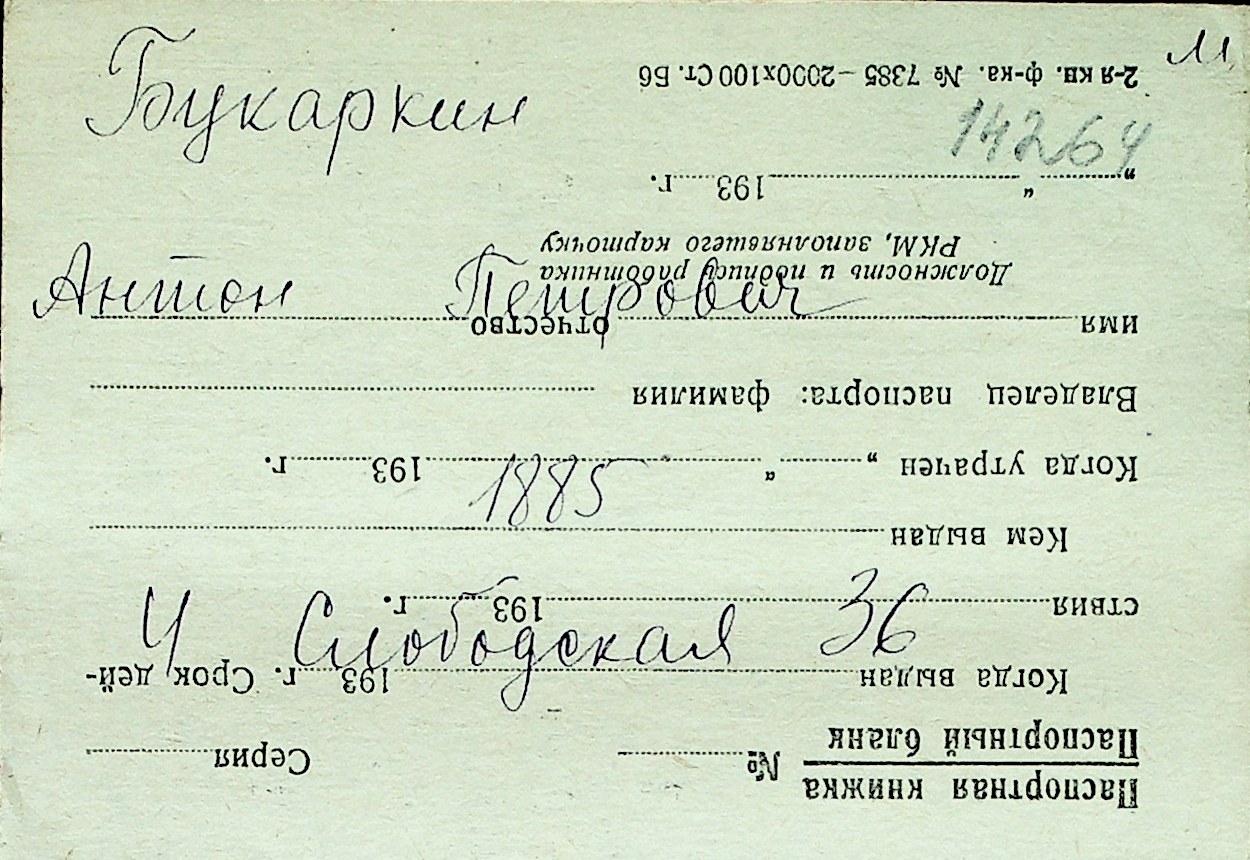 М
Букаркин
14264
Антон Петрович
1885
Ч Слободская 36
Паспортная книжка
Паспортный бланк № Серия
Когда выдан 193 г. Срок дей-
ствия 193 г.
Кем выдан
Когда утрачен „ “ 193 г.
Владелец паспорта: фамилия
имя отчество
Должность и подпись работника
РКМ, заполнявшего карточку
„ “ 193 г.
2-я кв. ф-ка. № 7385 – 2000х100 Ст. Б6